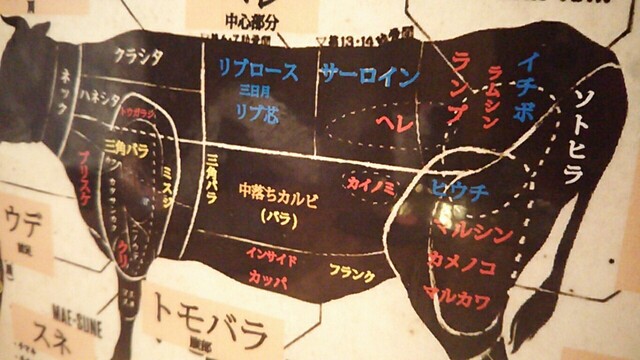 中心部分
クラシタ
ネック
ハネシタ
トウガラシ
三角バラ
ブリスケ
ミスジ
クリ
リブロース
三日月
リブ芯
サーロイン
ヘレ
ランプ
ラムシン
イチボ
ソトヒラ
三角バラ
中落ちカルビ
(バラ)
カイノミ
インサイド
カッパ
フランク
ヒウチ
マルシン
カメノコ
マルカワ
ウデ
MAE-SUNE
スネ
トモバラ